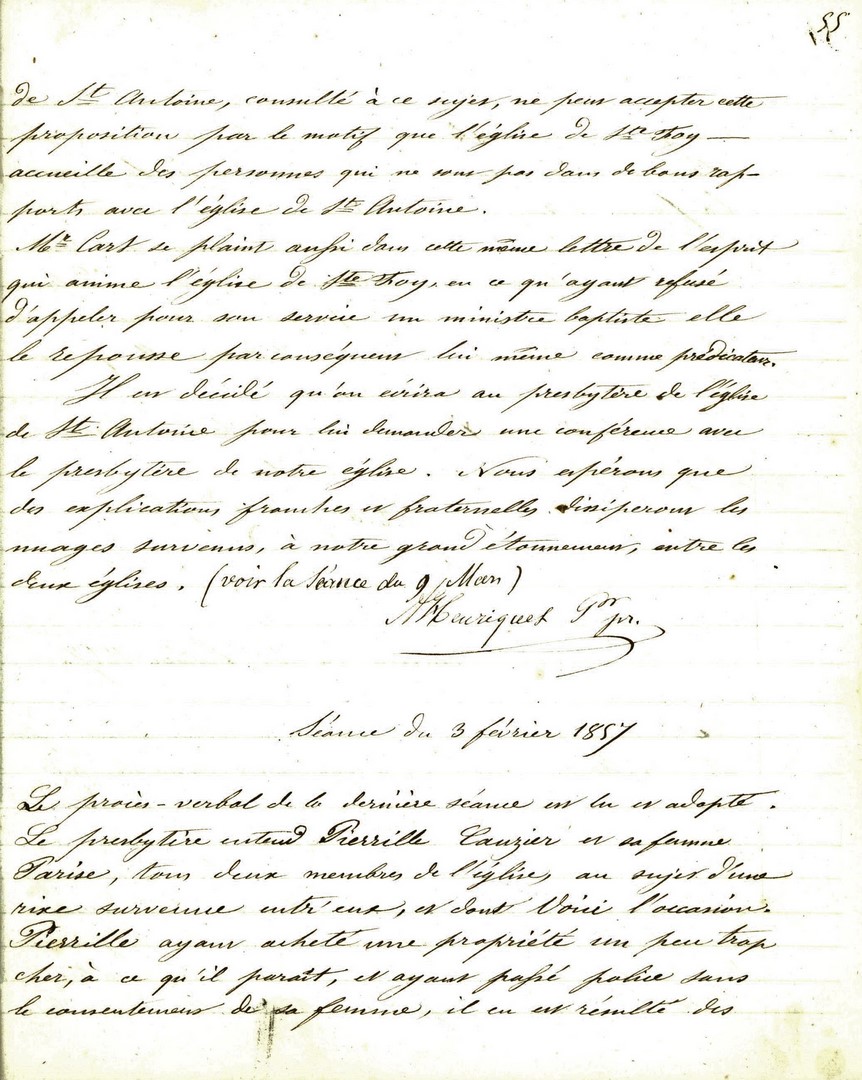 55
de St Antoine, consulté à ce sujet, ne peut accepter cette
proposition par le motif que l'église de Ste Foy —
accueille des personnes qui ne sont pas dans de bons rap-
ports avec l'église de St Antoine.
Mr Cart se plaint aussi dans cette même lettre de l'esprit
qui anime l'église de Ste Foy, en ce qu'ayant refusé
d'appeler pour son service un ministre baptiste elle
le repousse par conséquent lui même comme prédicateur.
Il est décidé qu'on écrira au presbytère de l'église
de St Antoine pour lui demander une conférence avec
le presbytère de notre église. Nous espérons que
des explications franches et fraternelles dissiperont les
nuages survenus, à notre grand étonnement, entre les
deux églises. (voir la Séance du 9 Mars)
Henriquet Pr pr.
Séance du 3 février 1857
Le procès-verbal de la dernière séance est lu et adopté.
Le presbytère entend Pierrille Cauzier et sa femme
Parise, tous deux membres de l'église, au sujet d'une
rixe survenue entr'eux, et dont voici l'occasion.
Pierrille ayant acheté une propriété un peu trop
cher, à ce qu'il paraît, et ayant passé police sans
le consentement de sa femme, il en est résulté des